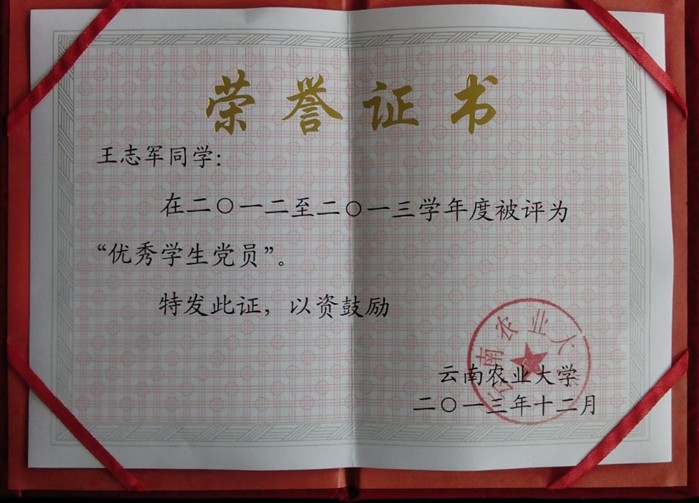 荣誉证书
王志军同学：
在二〇一二至二〇一三学年度被评为
“优秀学生党员”。
特发此证，以资鼓励
云南农业大学
二〇一三年十二月